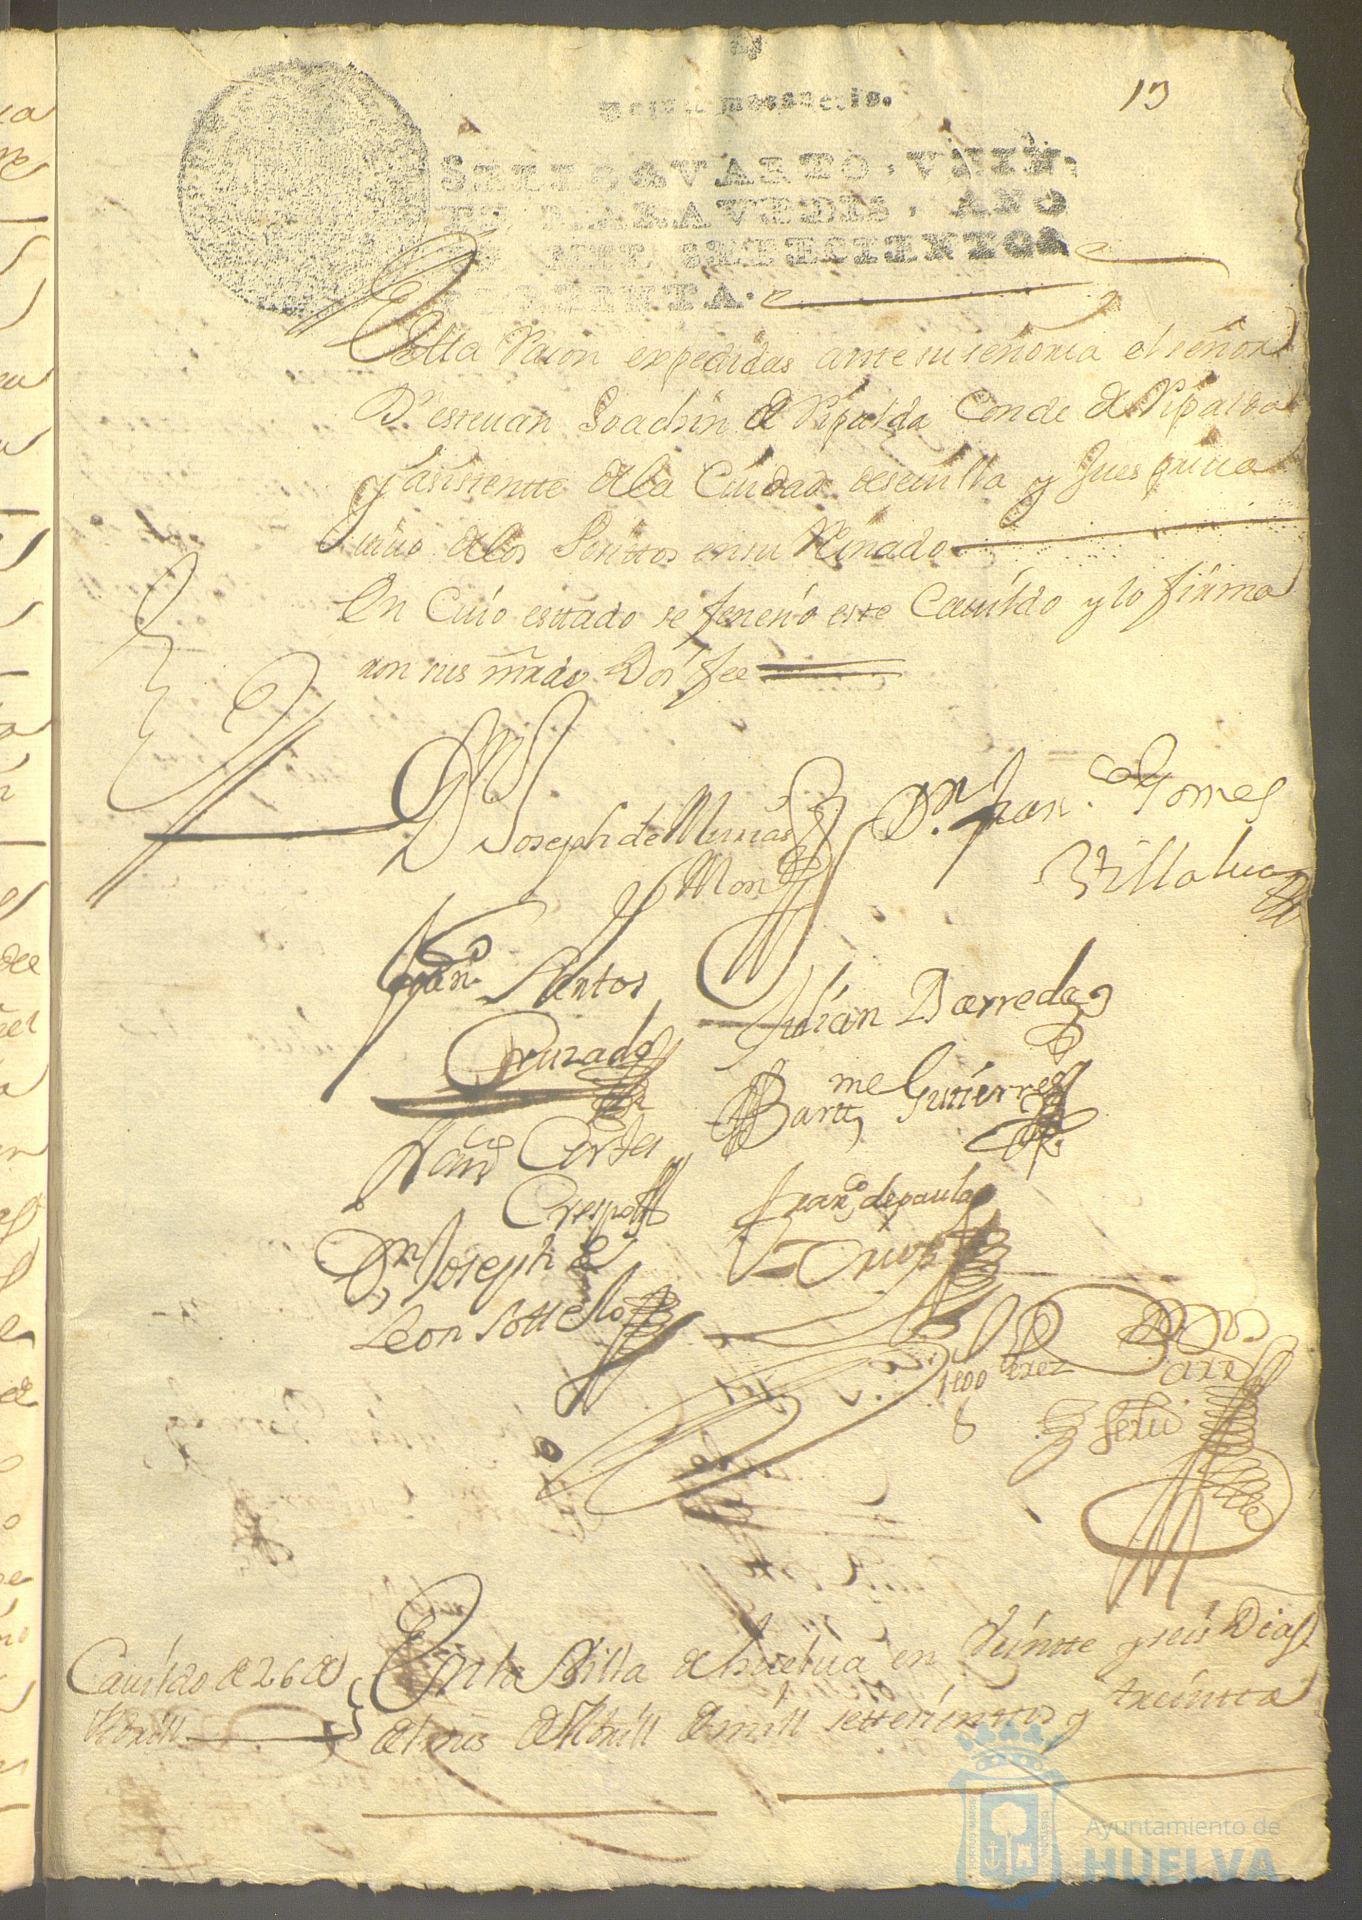 13
SELLO QVARTO, VEIN-
TE MARAVEDIS, AÑO
DE MIL SETECIENTOS
TREINTA.
esta raion expedidas ante su señoria el señor
Dn esteuan Joachin de Ripalda Conde de Ripalda
y asistentte de la Ciudad de seuilla y Jues priua
tiuo de los Seruittos en su Reinado
En Cuio esttado se feneció este Cauildo y lo firma
ron sus mrds Doi fee
Dn Joseph de
y Mon
Dn Franco Gomes
Villalua
Franco Santos
Cruzado
Julian Barreda
Bartme Gutierres
Franco Cortes
Crespo
Franco de paula
Dn Joseph de
Leon Sottelo
Diego Perez
Cauildo de 26 de
Abrill
En la Villa de huelua en Veintte y seis Dias
del mes de Abrill de mill settesienttos y treintta
Ayuntamiento de
HUELVA